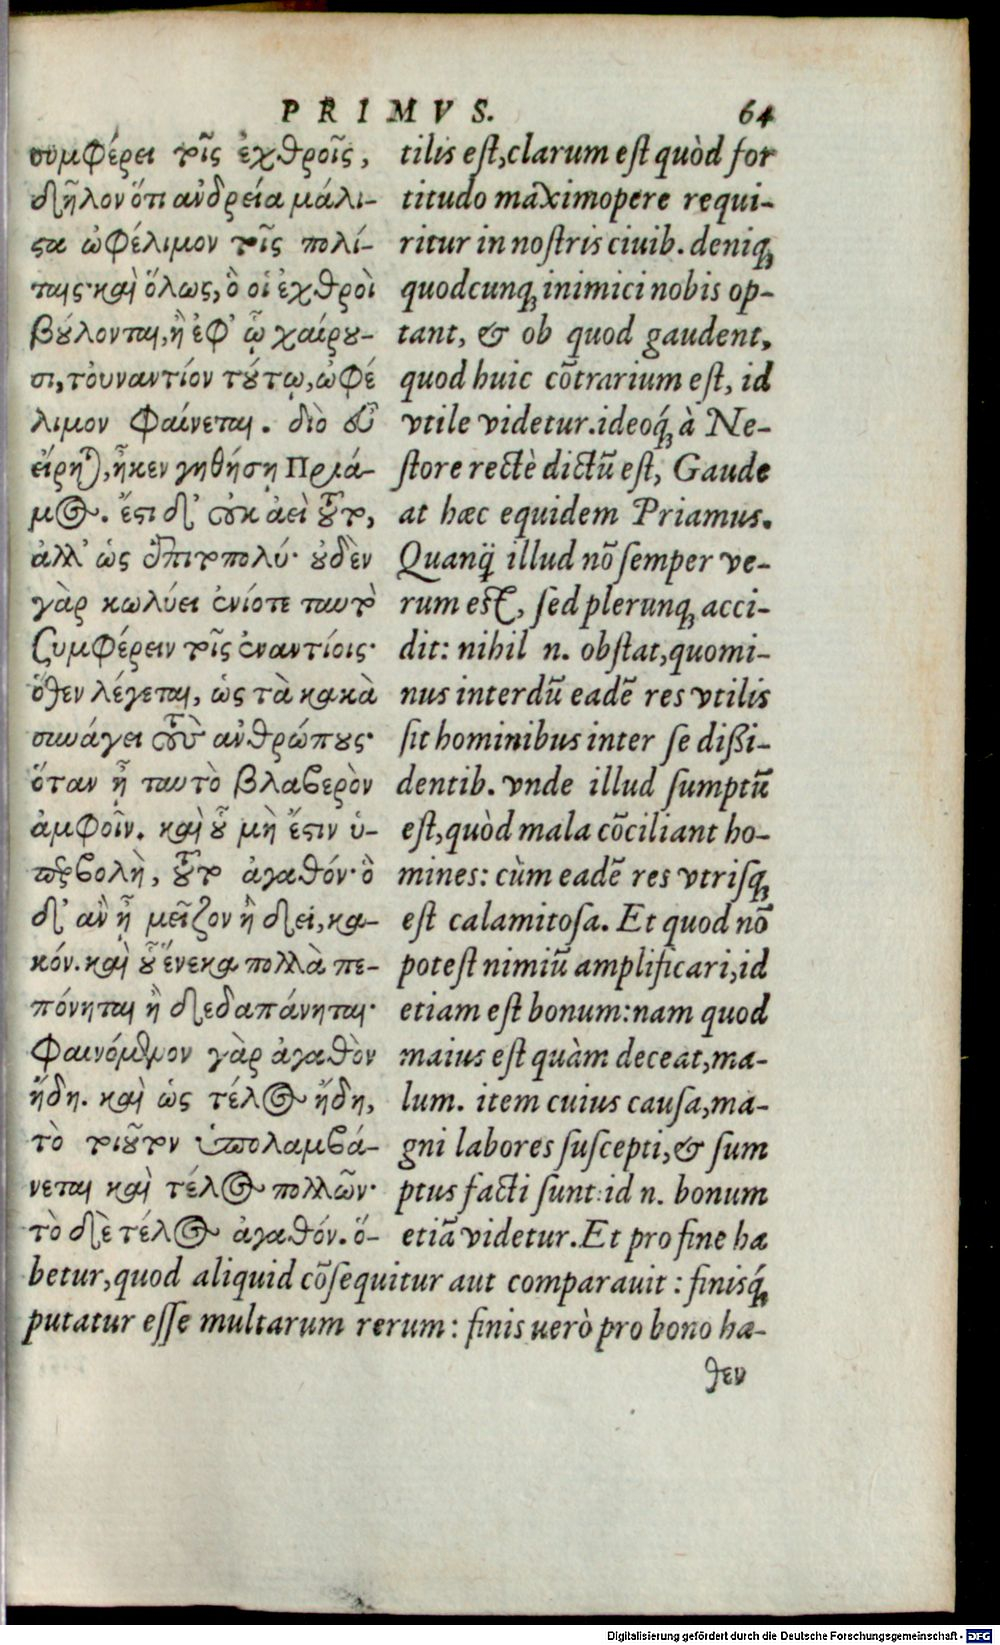 PRIMVS. 64
συμφέρει τοῖς ἐχθροῖς,
δῆλον ὅτι ἀνδρεία μάλι-
ϛα ὠφέλιμον τοῖς πολί-
ταις· καὶ ὅλως, ὃ οἱ ἐχθροὶ
βȣ́λονται, ἢ ἐφ' ᾧ χαίρȣ-
σι, τοὐναντίον τȣ́τῳ, ὠφέ
λιμον φαίνεται. διὸ εὖ
εἴρηται, ἦκεν γηθήσῃ Πριά-
μος. ἔϛι δ' οὐκ ἀεὶ τȣ͂το,
ἀλλ' ὡς ἐπιτοπολύ· ȣ̓δὲν
γὰρ κωλύει ἐνίοτε ταυτὸ
ζυμφέρειν τοῖς ἐναντίοις·
ὅθεν λέγεται, ὡς τὰ κακὰ
συνάγει τοὺς ἀνθρώπȣς·
ὅταν ᾖ ταυτὸ βλαβερὸν
ἀμφοῖν. καὶ ȣ̔͂ μὴ ἔϛιν ὑ-
περβολὴ, τȣ͂το ἀγαθόν· ὃ
δ' ἂν ᾖ μεῖζον ἢ δεῖ, κα-
κόν. καὶ ȣ̔͂ ἕνεκα πολλὰ πε-
πόνηται ἢ δεδαπάνηται·
φαινόμενον γὰρ ἀγαθὸν
ἤδη. καὶ ὡς τέλος ἤδη,
τὸ τοιȣ͂τον ὑπολαμβά-
νεται καὶ τέλος πολλῶν·
τὸ δὲ τέλος ἀγαθόν. ὅ-
tilis est, clarum est quòd for
titudo maximopere requi-
ritur in nostris ciuib. deniq;
quodcunq; inimici nobis op-
tant, & ob quod gaudent,
quod huic cōtrarium est, id
vtile videtur. ideoq́; à Ne-
store rectè dictū est, Gaude
at hæc equidem Priamus.
Quanq̈ illud nō semper ve-
rum est, sed plerunq; acci-
dit: nihil n. obstat, quomi-
nus interdū eadē res vtilis
sit hominibus inter se dißi-
dentib. vnde illud sumptū
est, quòd mala cōciliant ho-
mines: cùm eadē res vtrisq;
est calamitosa. Et quod nō
potest nimiū amplificari, id
etiam est bonum: nam quod
maius est quàm deceat, ma-
lum. item cuius causa, ma-
gni labores suscepti, & sum
ptus facti sunt: id n. bonum
etiā videtur. Et pro fine ha
betur, quod aliquid cōsequitur aut comparauit : finisq́;
putatur esse multarum rerum : finis uerò pro bono ha-
θεν
Digitalisierung gefördert durch die Deutsche Forschungsgemeinschaft - DFG